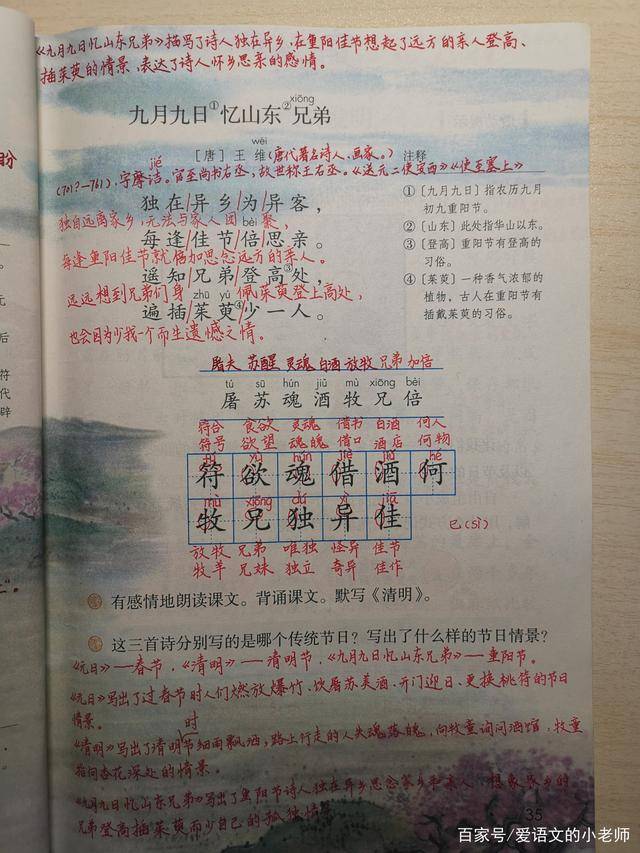 《九月九日忆山东兄弟》描写了诗人独在异乡,在重阳佳节想起了远方的亲人登高、
插茱萸的情景,表达了诗人怀乡思亲的感情。
xiōng
九月九日①忆山东②兄弟
wéi
[唐]王维(唐代著名诗人、画家。)
jié
(701?—761),字摩诘。官至尚书右丞,故世称王右丞。《送元二使安西》《使至塞上》
独/在/异乡/为/异客,
独自远离家乡,无法与家人团聚,
每逢/佳节/倍/思亲。
每逢重阳佳节就倍加思念远方的亲人。
遥知/兄弟/登高③处,
远远想到兄弟们身佩茱萸登上高处,
zhū yú
遍插/茱萸④/少一人。
也会因为少我一个而生遗憾之情。
注释
①〔九月九日〕指农历九月
初九重阳节。
②〔山东〕此处指华山以东。
③〔登高〕重阳节有登高的
习俗。
④〔茱萸〕一种香气浓郁的
植物,古人在重阳节有
插戴茱萸的习俗。
屠夫 苏醒 灵魂 白酒 放牧 兄弟 加倍
tú sū hún jiǔ mù xiōng bèi
屠 苏 魂 酒 牧 兄 倍
符合 食欲 灵魂 借书 白酒 何人
符号 欲望 魂魄 借口 酒店 何物
fú yù hún jiè jiǔ hé
符 欲 魂 借 酒 何
mù xiōng dú yì jiā
牧 兄 独 异 佳
巳(sì)
放牧 兄弟 唯独 怪异 佳节
牧羊 兄妹 独立 奇异 佳作
有感情地朗读课文。背诵课文。默写《清明》。
这三首诗分别写的是哪个传统节日?写出了什么样的节日情景?
《元日》——春节,《清明》——清明节,《九月九日忆山东兄弟》——重阳节。
《元日》写出了过春节时人们燃放爆竹、饮屠苏美酒、开门迎日、更换桃符的节日
情景。
《清明》写出了清明节时细雨飘洒,路上行走的人失魂落魄,向牧童询问酒馆,牧童
指向杏花深处的情景。
《九月九日忆山东兄弟》写出了重阳节诗人独在异乡思念家乡和亲人,想象家乡的
兄弟登高插茱萸而少自己的孤独情景
35
盼
元
后
符
代
辟
百家号/爱语文的小老师